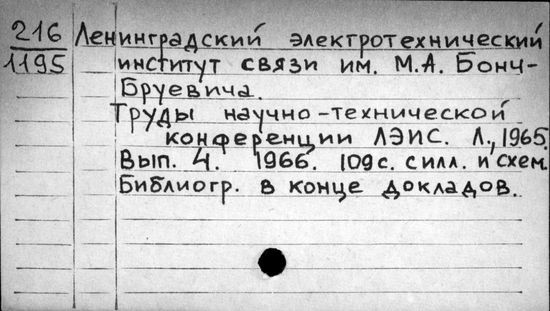 216 Ленинградский электротехнический
1195 институт связи им. М.А. Бонч-
Бруевича.
Труды научно-технической
конференции ЛЭИС. Л., 1965.
Вып. 4. 1966. 109 с. с илл. и схем.
Библиогр. в конце докладов.